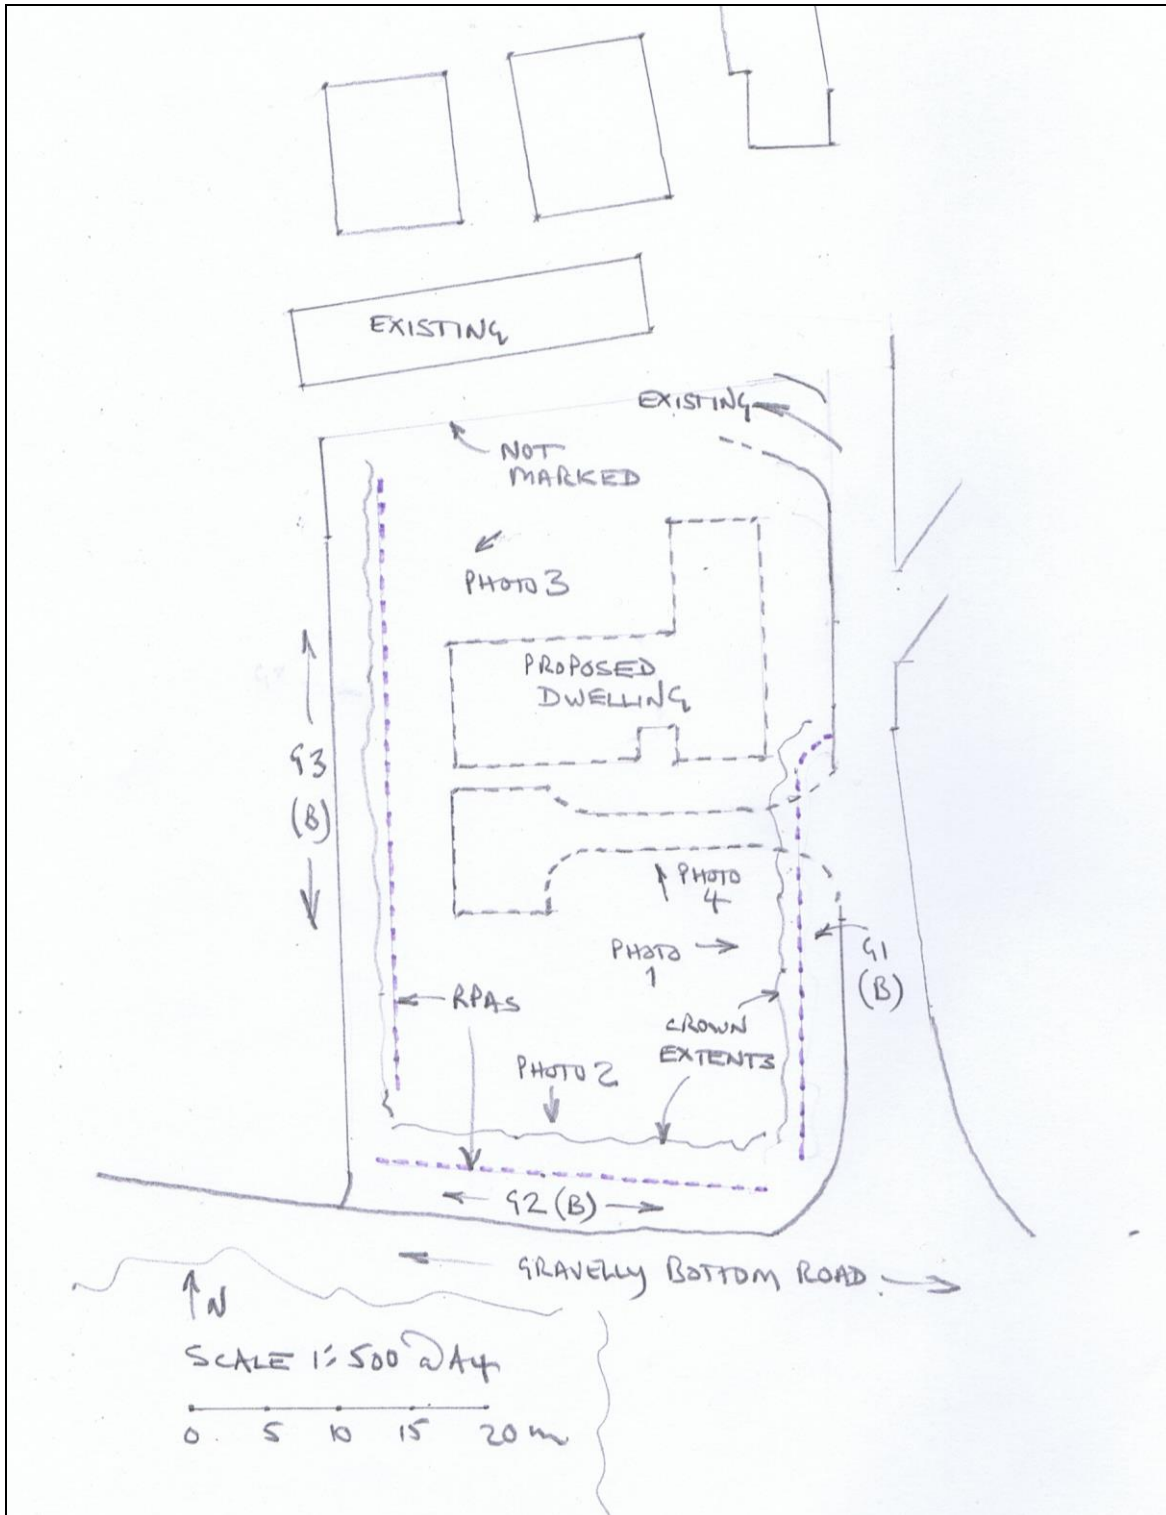 EXISTING
EXISTING
NOT
MARKED
PHOTO 3
PROPOSED
DWELLING
G3
(B)
PHOTO
4
PHOTO
1
G1
(B)
RPAS
CROWN
EXTENTS
PHOTO 2
G2 (B)
GRAVELLY BOTTOM ROAD
N
SCALE 1:500 @ A4
0 5 10 15 20 m